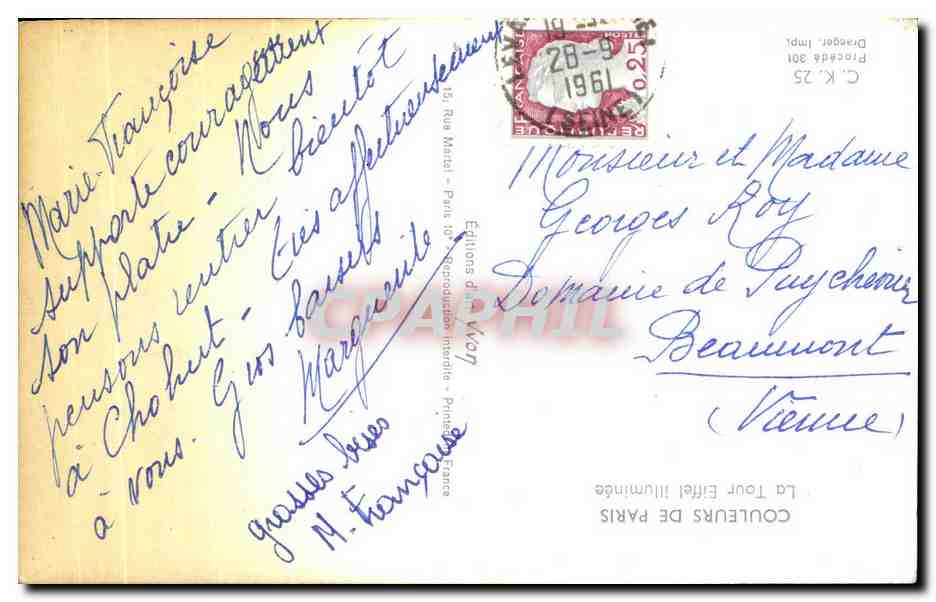 Marie-Françoise
supporte courageusement
son platre - Nous
pensons rentrer bientôt
à Chobert - très affectueusement
à vous. Gros baisers
Marguerite
grosses bises
M. Françoise
Monsieur et Madame
Georges Roy
Domaine de Puychevrier
Beaumont
(Vienne)
28-9
1961
(SEINE)
0,25
REPUBLIQUE FRANÇAISE
C. K. 25
Procédé 301
Draeger, Imp.
Éditions d'art Yvon
15, Rue Martel - Paris 10e - Reproduction interdite - Printed France
COULEURS DE PARIS
La Tour Eiffel illuminée
CPAPHIL